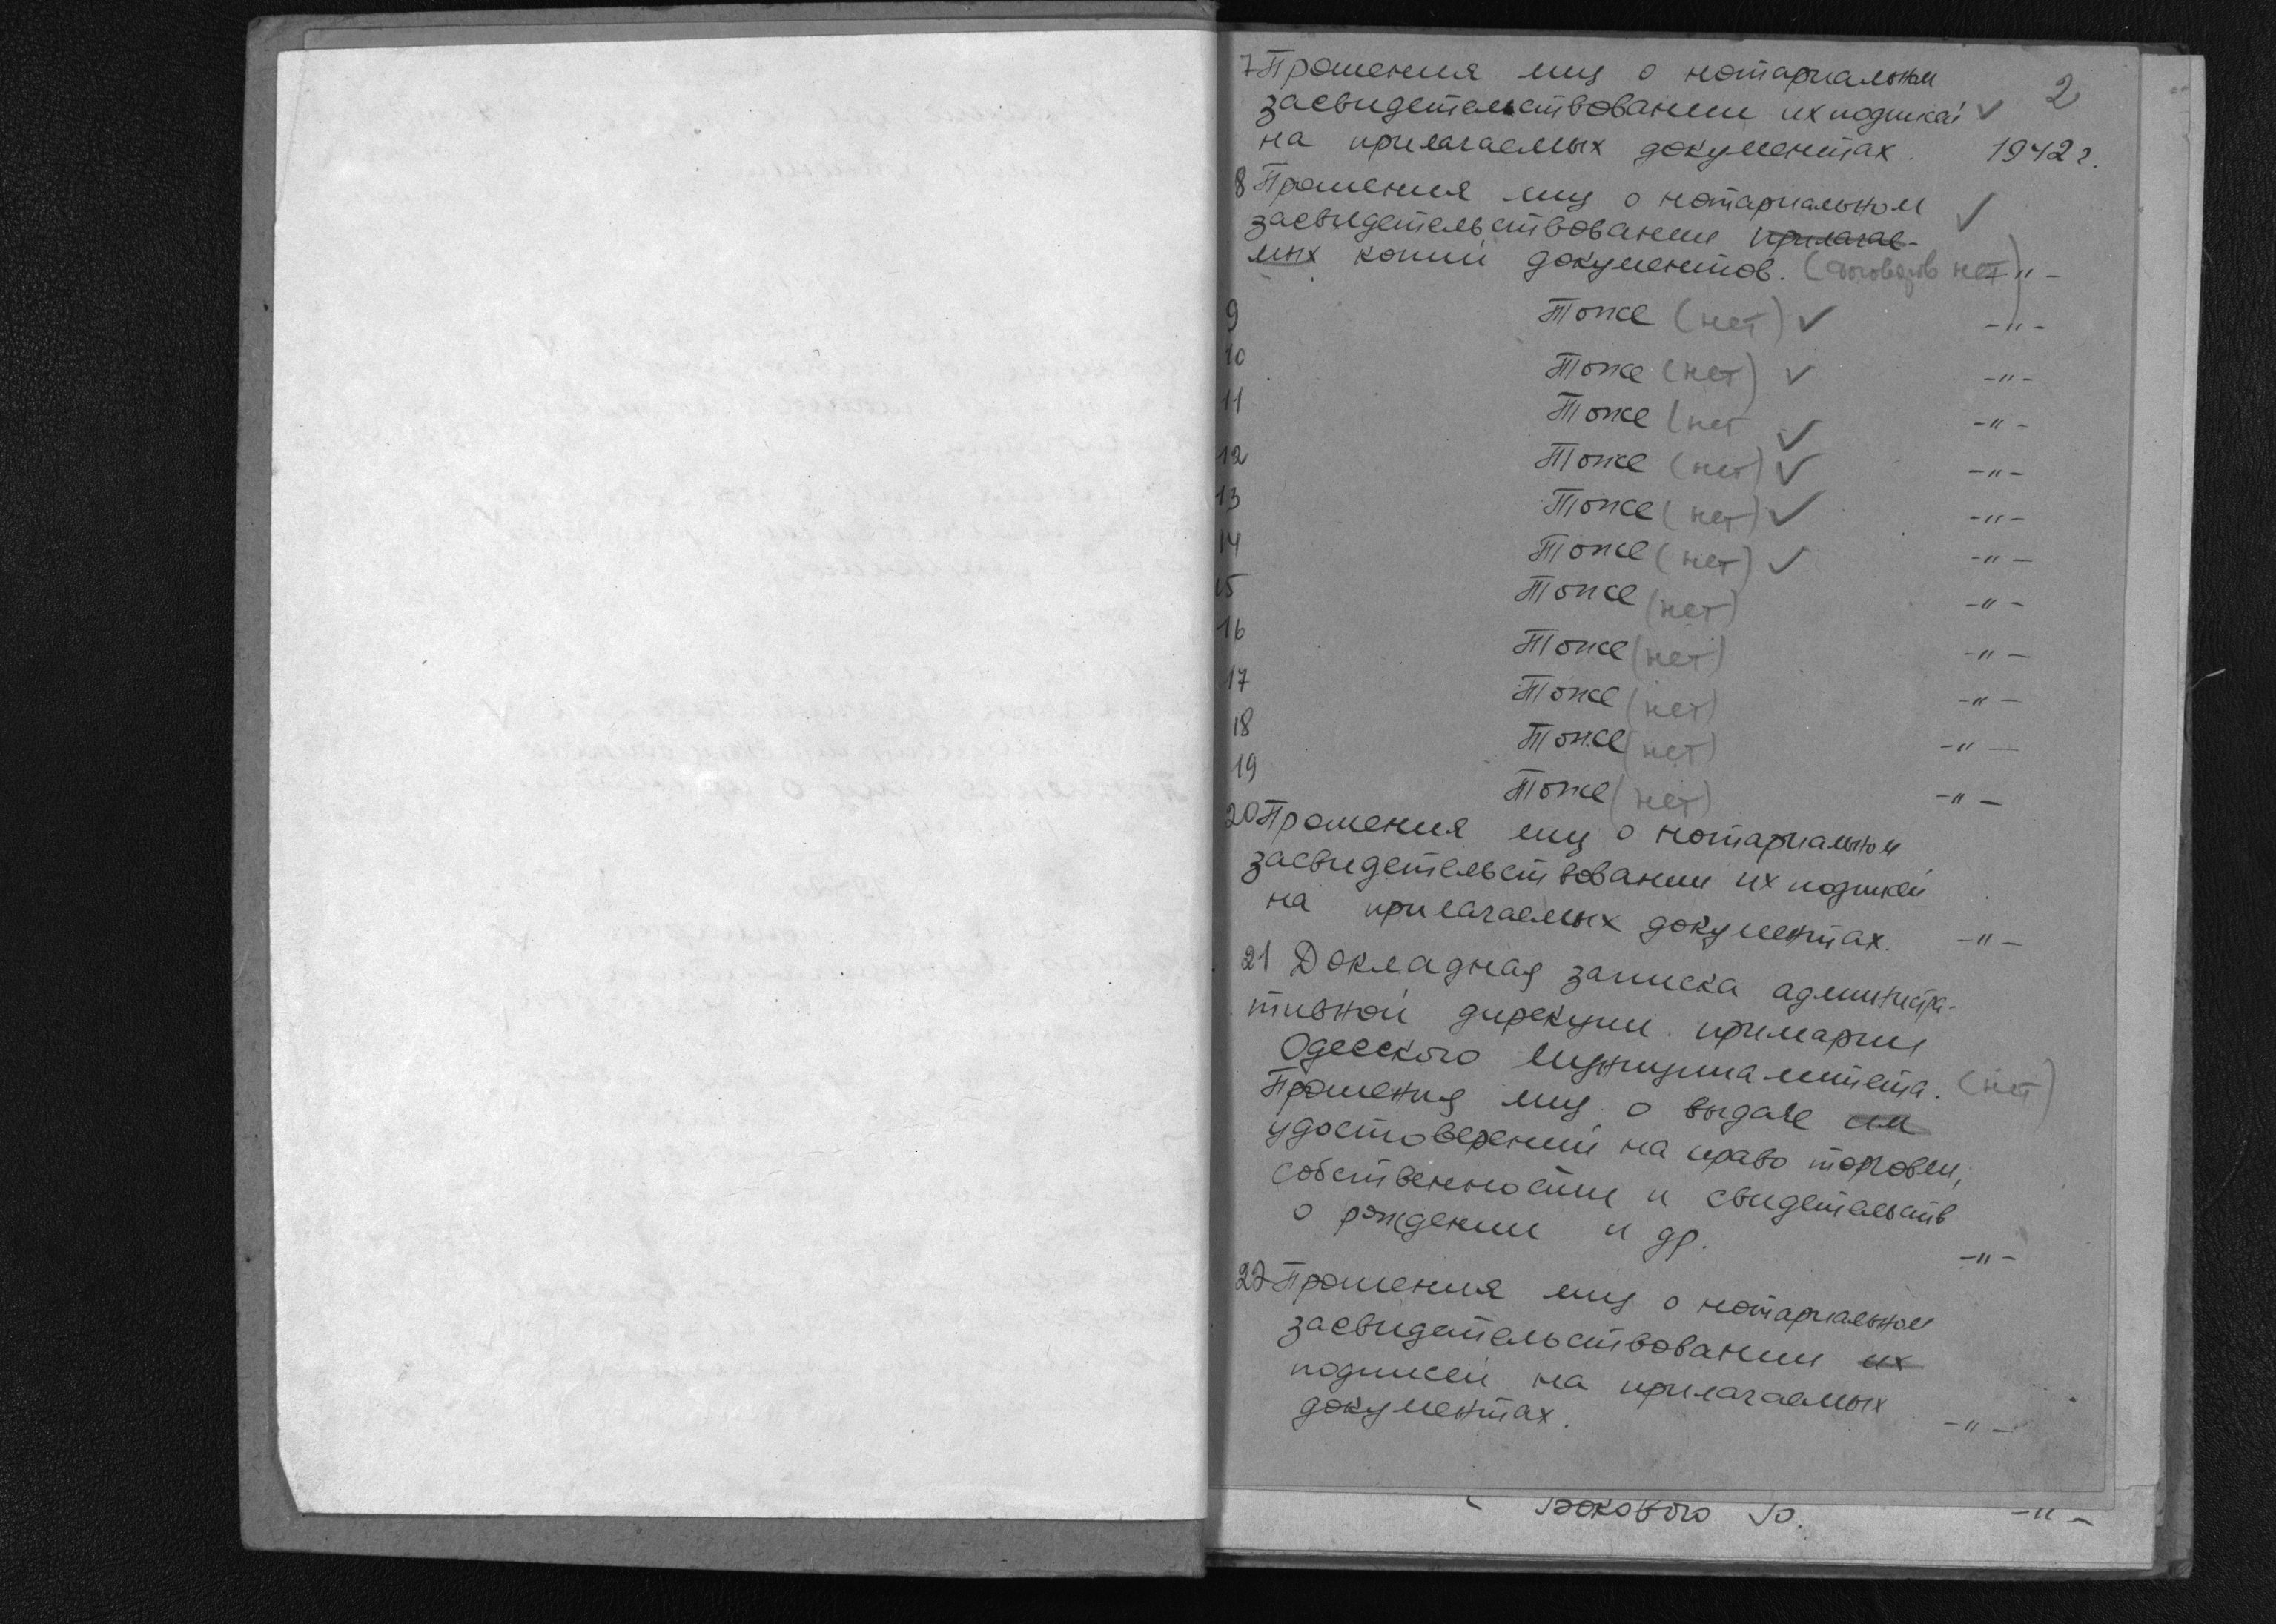 2
7 Прошения лиц о нотариальном
засвидетельствовании их подписей ✓
на прилагаемых документах. 1942 г.
8 Прошения лиц о нотариальном ✓
засвидетельствовании прилагае-
мых копий документов. (договоров нет) -"-
9 Тоже (нет) ✓ -"-
10 Тоже (нет) ✓ -"-
11 Тоже (нет ✓ -"-
12 Тоже (нет) ✓ -"-
13 Тоже (нет) ✓ -"-
14 Тоже (нет) ✓ -"-
15 Тоже (нет) -"-
16 Тоже (нет) -"-
17 Тоже (нет) -"-
18 Тоже (нет) -"-
19 Тоже (нет) -"-
20 Прошения лиц о нотариальном
засвидетельствовании их подписей
на прилагаемых документах. -"-
21 Докладная записка администра-
тивной дирекции примарии
Одесского муниципалитета. (нет)
Прошения лиц о выдаче им
удостоверений на право торговли,
собственности и свидетельств
о рождении и др. -"-
22 Прошения лиц о нотариальном
засвидетельствовании их
подписей на прилагаемых
документах. -"-
Бокового -"-